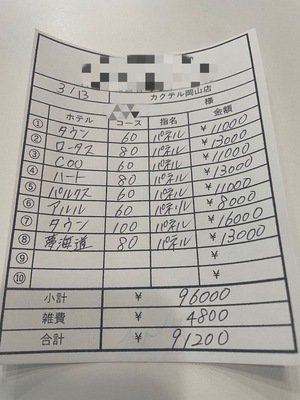 3/13 カクテル岡山店
様
ホテル コース 指名 金額
① タウン 60 パネル ¥11000
② ロータス 80 パネル ¥13000
③ COO 60 パネル ¥11000
④ ハート 80 パネル ¥13000
⑤ パルクス 60 パネル ¥11000
⑥ アルル 60 パネル ¥8000
⑦ タウン 100 パネル ¥16000
⑧ 夢海道 80 パネル ¥13000
⑨ ¥
⑩ ¥
小計 ¥ 96000
雑費 ¥ 4800
合計 ¥ 91200